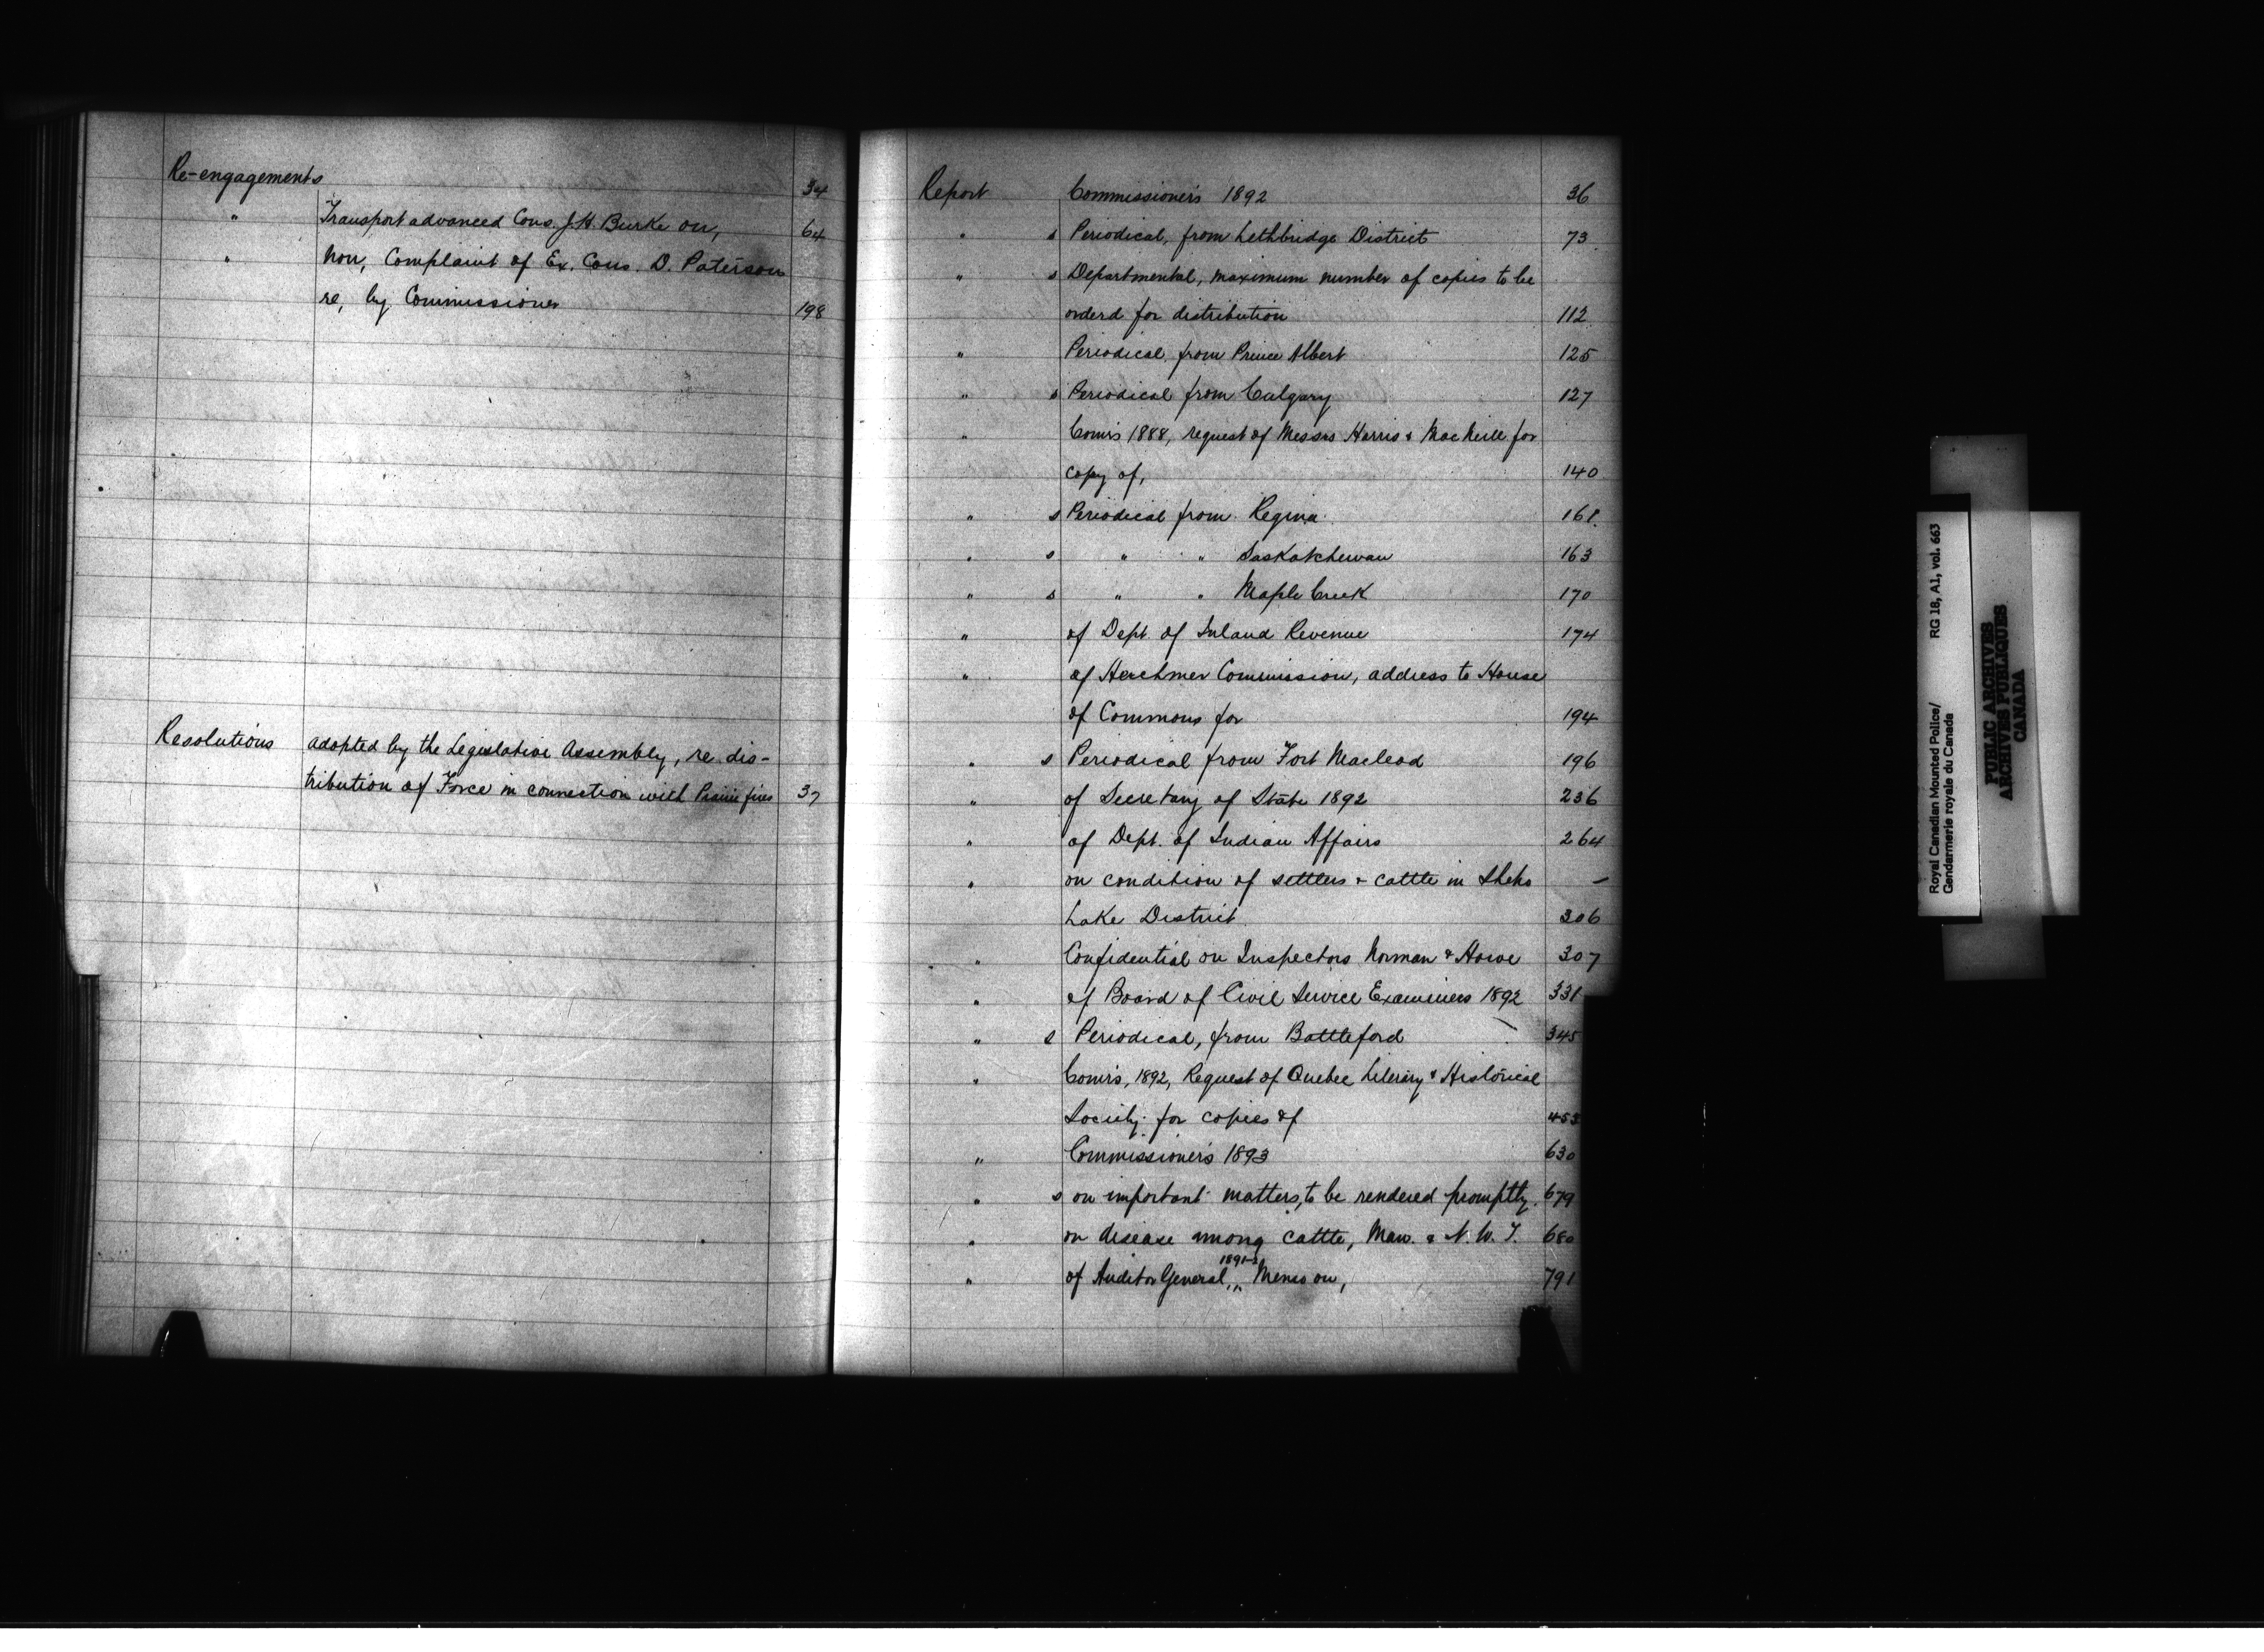 Re-engagements 34
" Transport advanced Cons. J. H. Burke on, 64
" Non, Complaint of Ex. Cons. D. Paterson
re, by Commissioner 198
Resolutions adopted by the Legislative Assembly, re dis-
tribution of Force in connection with Prairie fires 37
Report Commissioner's 1892 36
" s Periodical, from Lethbridge District 73
" s Departmental, maximum number of copies to be
orderd for distribution 112
" Periodical, from Prince Albert 125
" s Periodical from Calgary 127
" Comr's 1888, request of Messrs Harris & MacNeill for
copy of, 140
" s Periodical from Regina 161
" s " " Saskatchewan 163
" s " " Maple Creek 170
" of Dept. of Inland Revenue 174
" of Herchmer Commission, address to House
of Commons for 194
" s Periodical from Fort Macleod 196
" of Secretary of State 1892 236
" of Dept. of Indian Affairs 264
" on condition of settlers & cattle in Sheho —
Lake District 306
" Confidential on Inspectors Norman & Howe 307
" of Board of Civil Service Examiners 1892 331
" s Periodical, from Battleford 345
" Comr's, 1892, Request of Quebec Literary & Historical
Society for copies of 453
" Commissioner's 1893 630
" s on important matters, to be rendered promptly. 679
" on disease among cattle, Man. & N. W. T. 680
" of Auditor General, 1891-2 " Memo on, 791
Royal Canadian Mounted Police/ RG 18, A1, vol. 663
Gendarmerie royale du Canada
PUBLIC ARCHIVES
ARCHIVES PUBLIQUES
CANADA